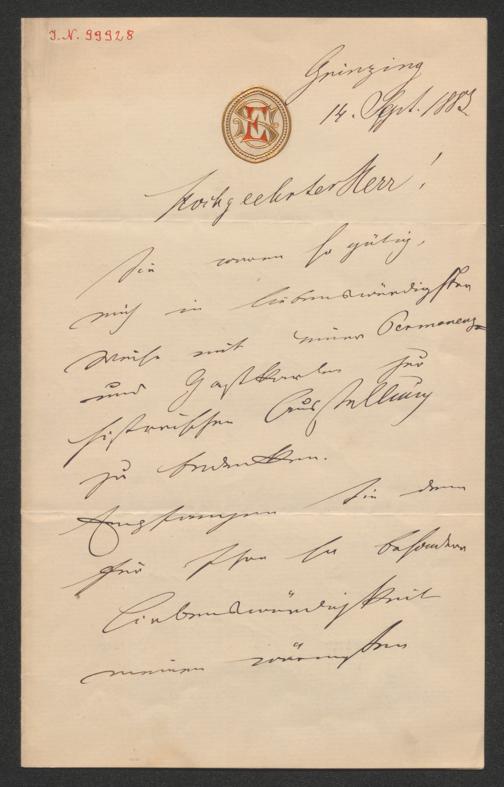 J. N. 99928
Grinzing
14. Sept. 1883
E
Hochgeehrter Herr!
Sie waren so gütig,
mich in liebenswürdigster
Weise mit einer Permanenz-
und Gastkarten zur
historischen Ausstellung
zu bedenken.
Empfangen Sie dem
für Ihre so besondere
Liebenswürdigkeit
meinen wärmsten